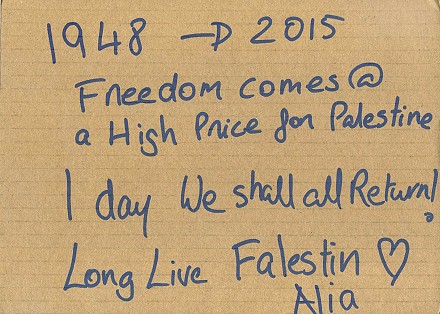 1948 → 2015
Freedom comes @
a High Price for Palestine
1 day We shall all Return!
Long Live Falestin ♡
Alia